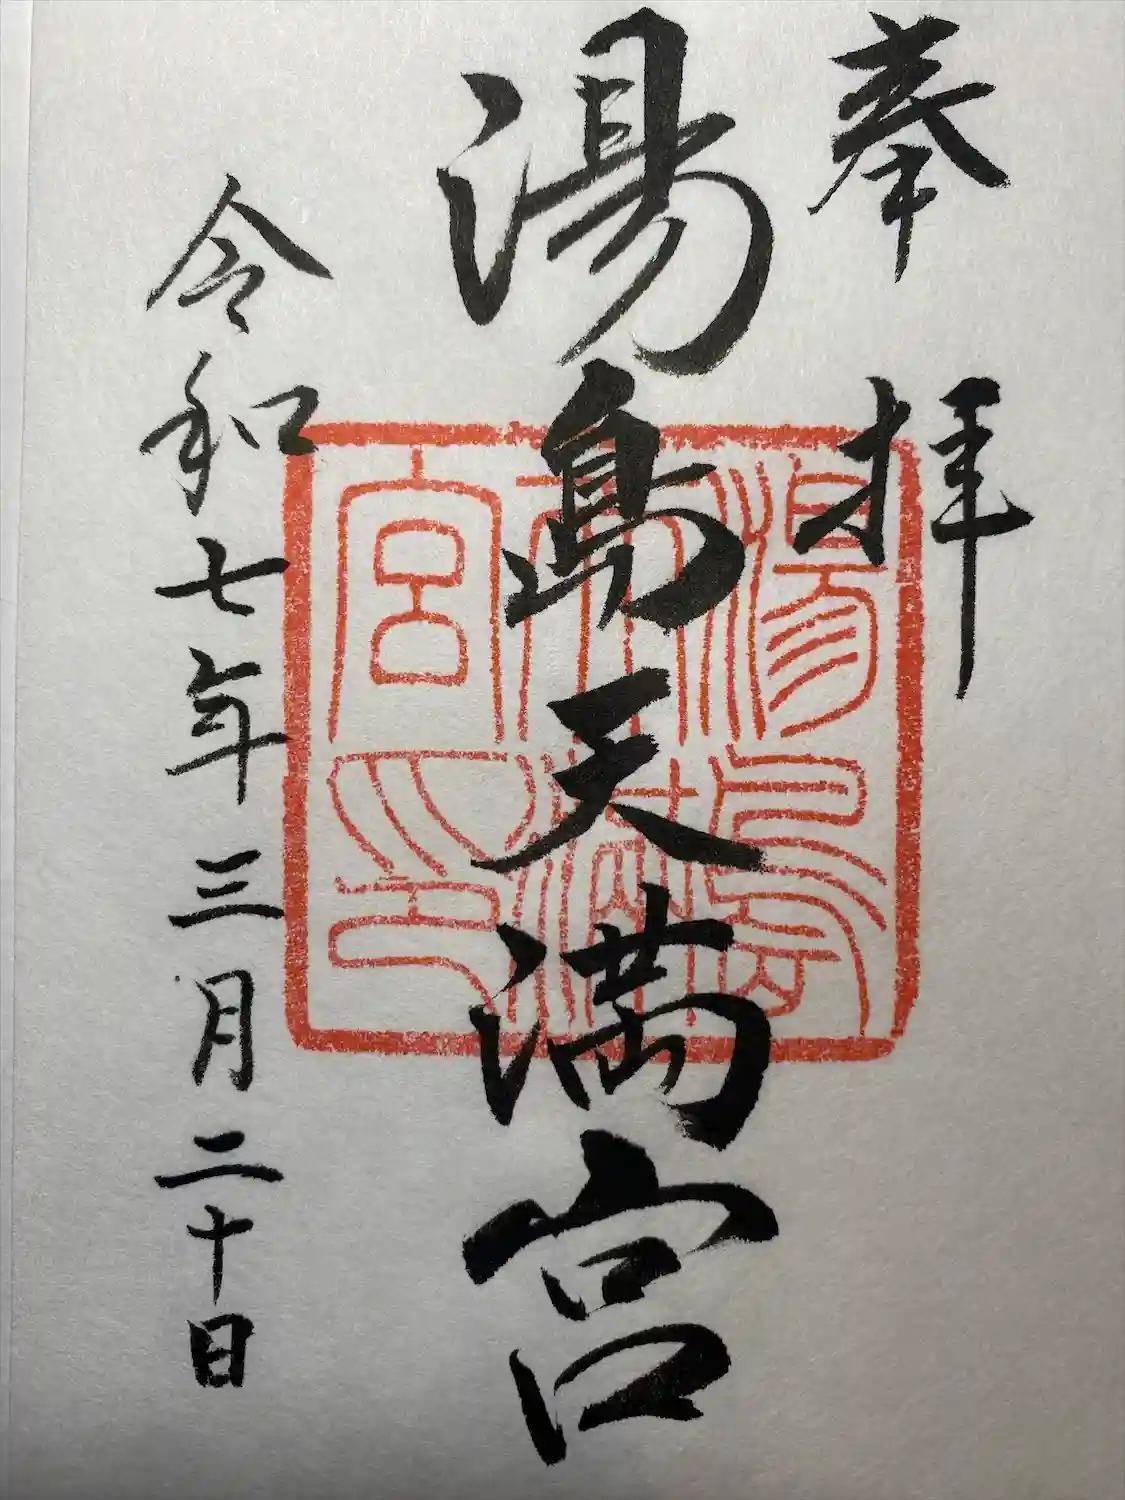 奉拝
湯島天満宮
令和七年三月二十日
湯島
天満
宮印